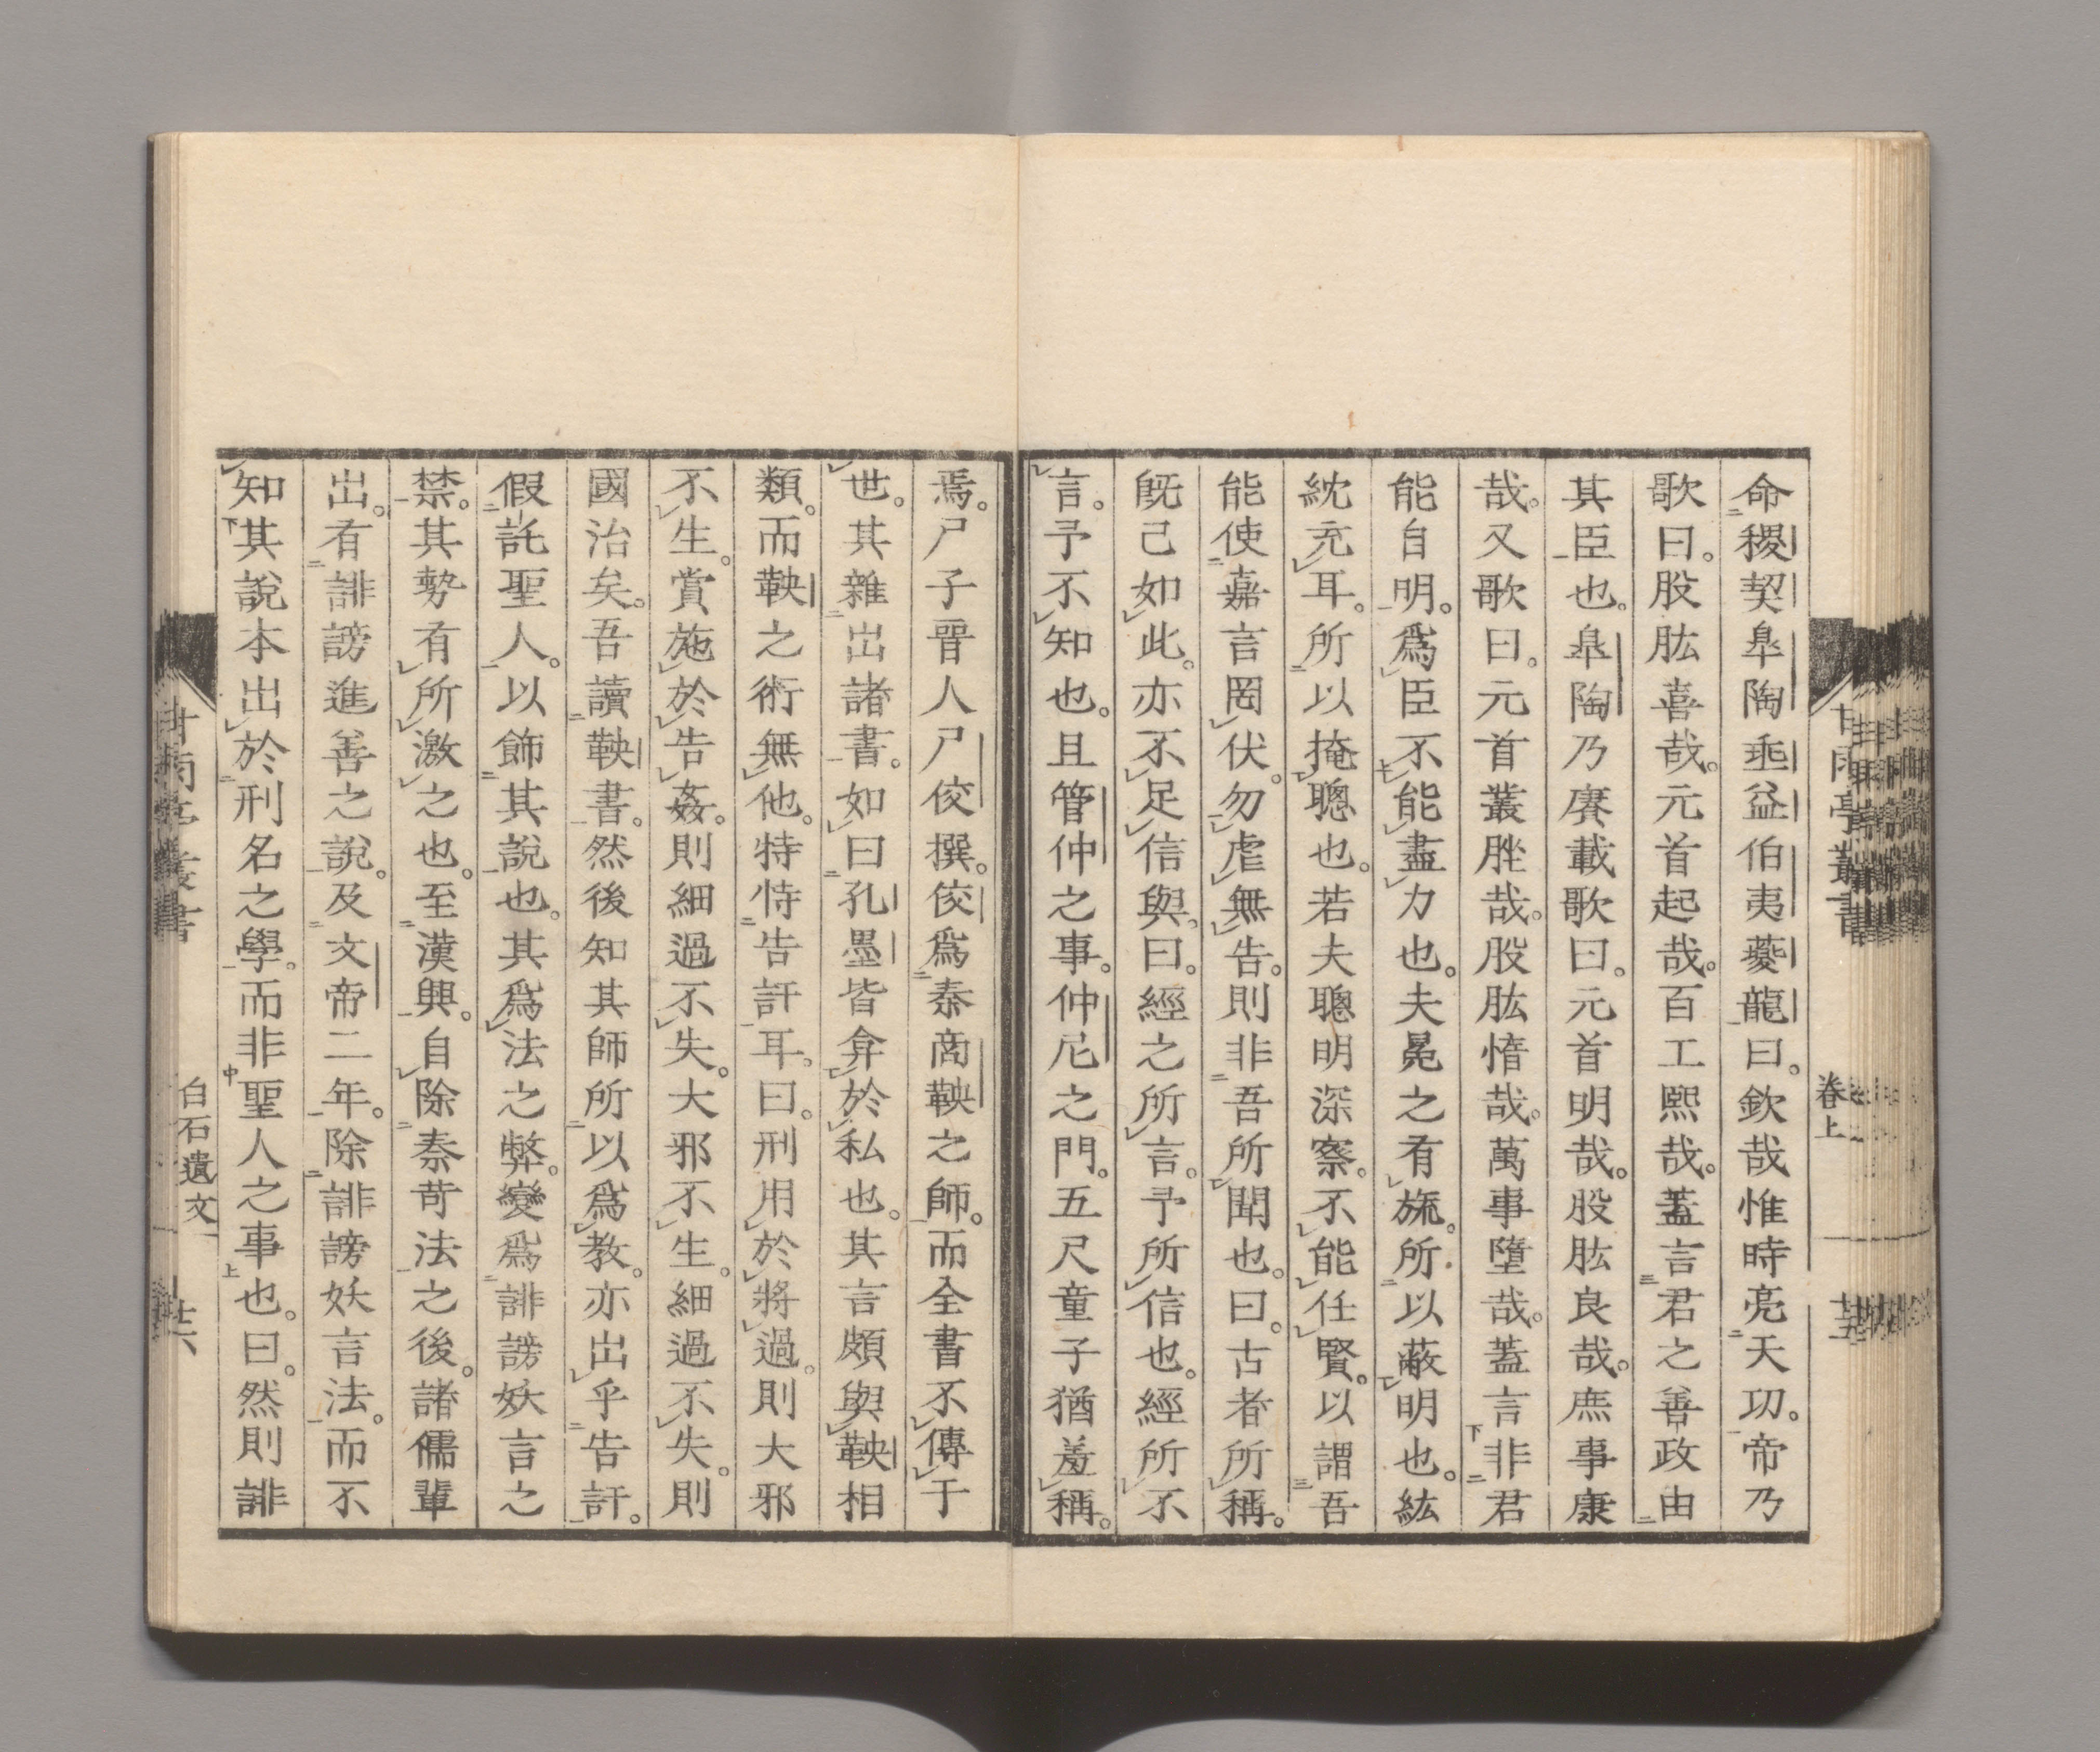 命稷契皐陶垂益伯夷夔龍曰。欽哉惟時亮天功。帝乃
歌曰。股肱喜哉。元首起哉。百工熙哉。蓋言君之善政由
其臣也。皐陶乃賡載歌曰。元首明哉。股肱良哉。庶事康
哉。又歌曰。元首叢脞哉。股肱惰哉。萬事墮哉。蓋言非君
能自明。爲臣不能盡力也。夫冕之有旒。所以蔽明也。紘
紞充耳。所以掩聰也。若夫聰明深察。不能任賢。以謂吾
能使嘉言罔伏。勿虐無告。則非吾所聞也。曰。古者所稱。
既己如此。亦不足信與。曰。經之所言。予所信也。經所不
言。予不知也。且管仲之事。仲尼之門。五尺童子猶羞稱。
焉。尸子晋人尸佼撰。佼爲秦商鞅之師。而全書不傳于
世。其雜出諸書。如曰孔墨皆弇於私也。其言頗與鞅相
類。而鞅之術無他。特恃告訐耳。曰。刑用於將過。則大邪
不生。賞施於告姦。則細過不失。大邪不生。細過不失。則
國治矣。吾讀鞅書。然後知其師所以爲教。亦出乎告訐。
假託聖人。以飾其說也。其爲法之弊。變爲誹謗妖言之
禁。其勢有所激之也。至漢興。自除秦苛法之後。諸儒輩
出。有誹謗進善之說。及文帝二年。除誹謗妖言法。而不
知其說本出於刑名之學。而非聖人之事也。曰。然則誹
甘雨亭叢書
卷上
甘雨亭叢書
白石遺文